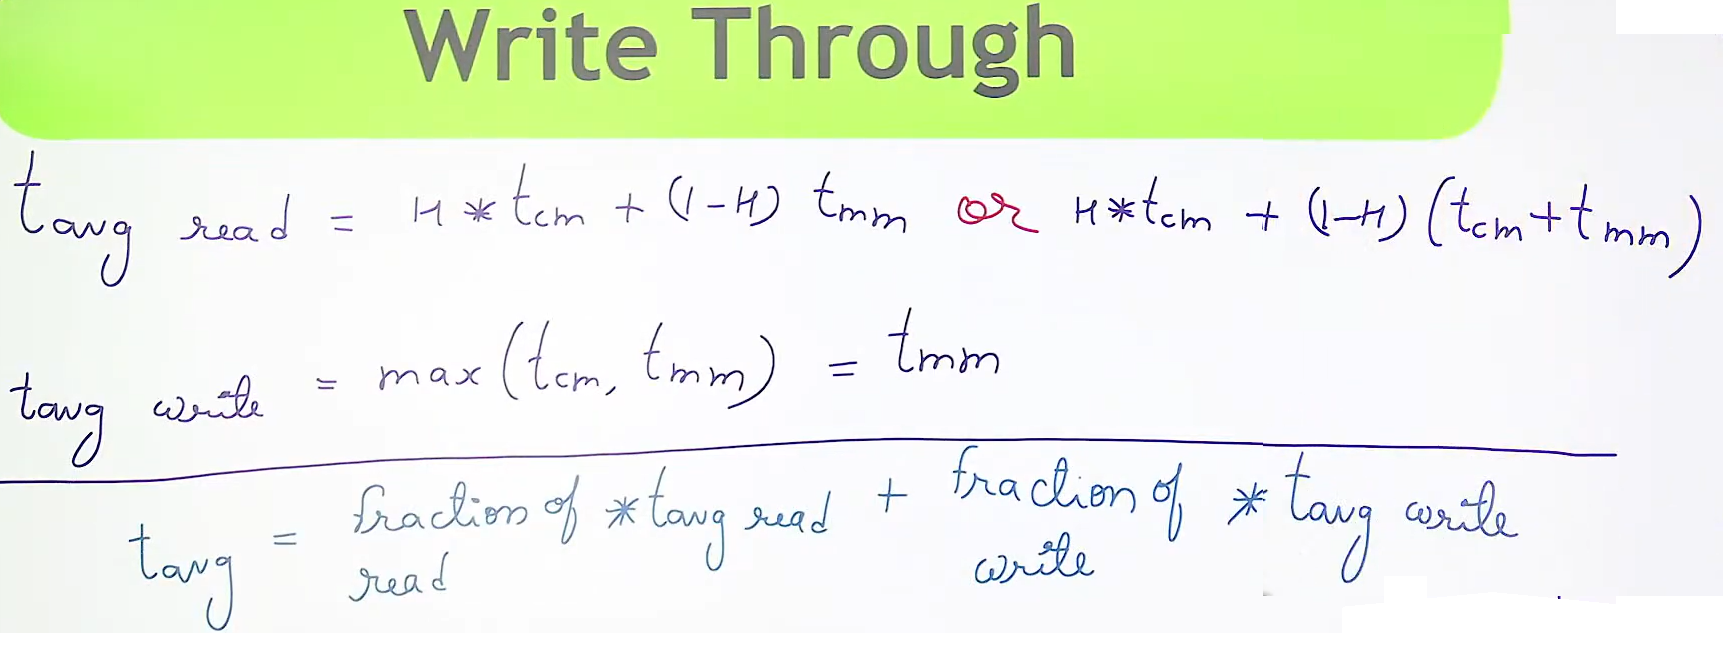 Write Through
tavg read = H * tcm + (1-H) tmm or H*tcm + (1-H) (tcm+tmm)
tavg write = max (tcm, tmm) = tmm
tavg = fraction of read * tavg read + fraction of write * tavg write